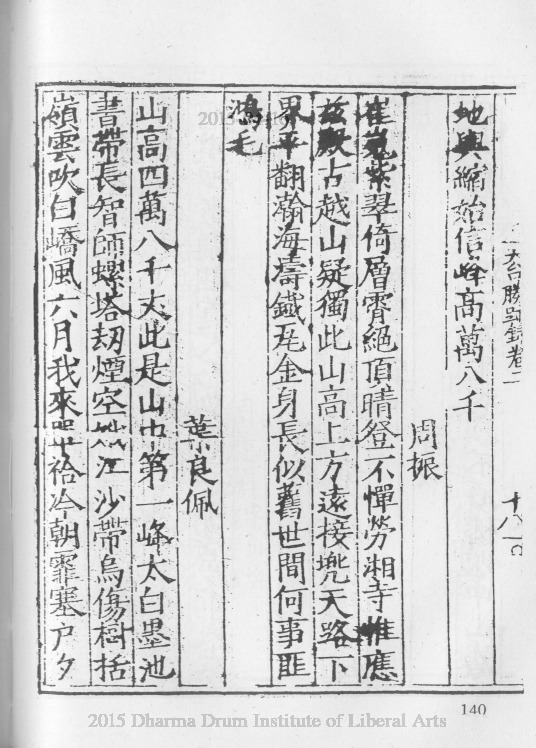 天台勝蹟錄卷二 十八
地輿縮始信峰高萬八千
周振
崔嵬紫翠倚層霄絕頂晴登不憚勞湘寺惟應
茲殿古越山疑獨此山高上方遠接兜天路下
界平翻瀚海濤鐵瓦金身長似舊世間何事匪
鴻毛
葉良佩
山高四萬八千丈此是山中第一峰太白墨池
書帶長智師螺塔刼煙空江沙帶烏傷樹括
嶺雲吹白嶠風六月我來單袷冷朝霏塞戶夕
140
2015 Dharma Drum Institute of Liberal Arts